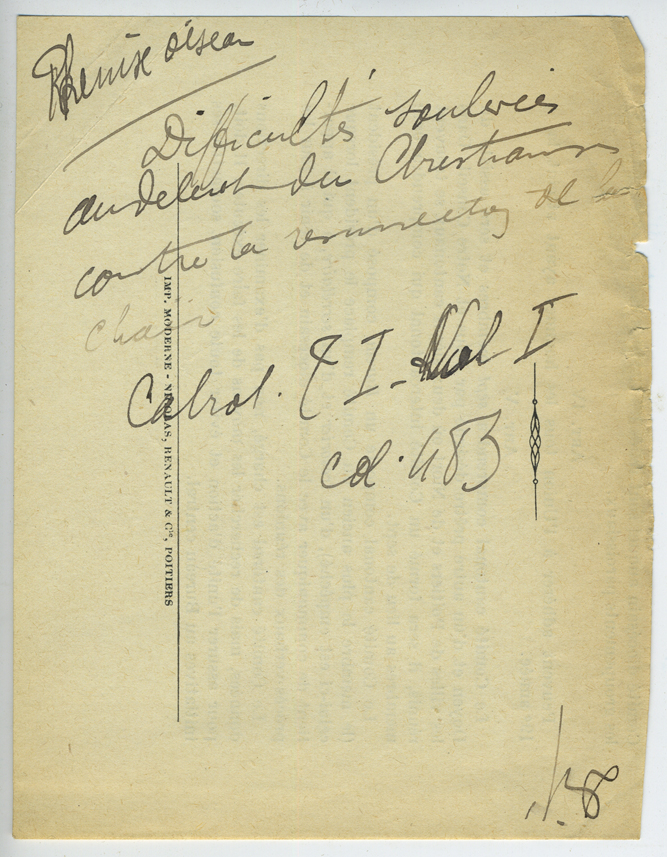 Phénix oiseau
Difficultés soulevées
au début du Christianisme
contre la résurrection de la
chair
Cabrol. T I - Vol I
col. 483
IMP. MODERNE - NICOLAS, RENAULT & Cie, POITIERS